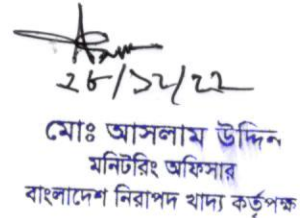 ২৮/১২/২২
মোঃ আসলাম উদ্দিন
মনিটরিং অফিসার
বাংলাদেশ নিরাপদ খাদ্য কর্তৃপক্ষ